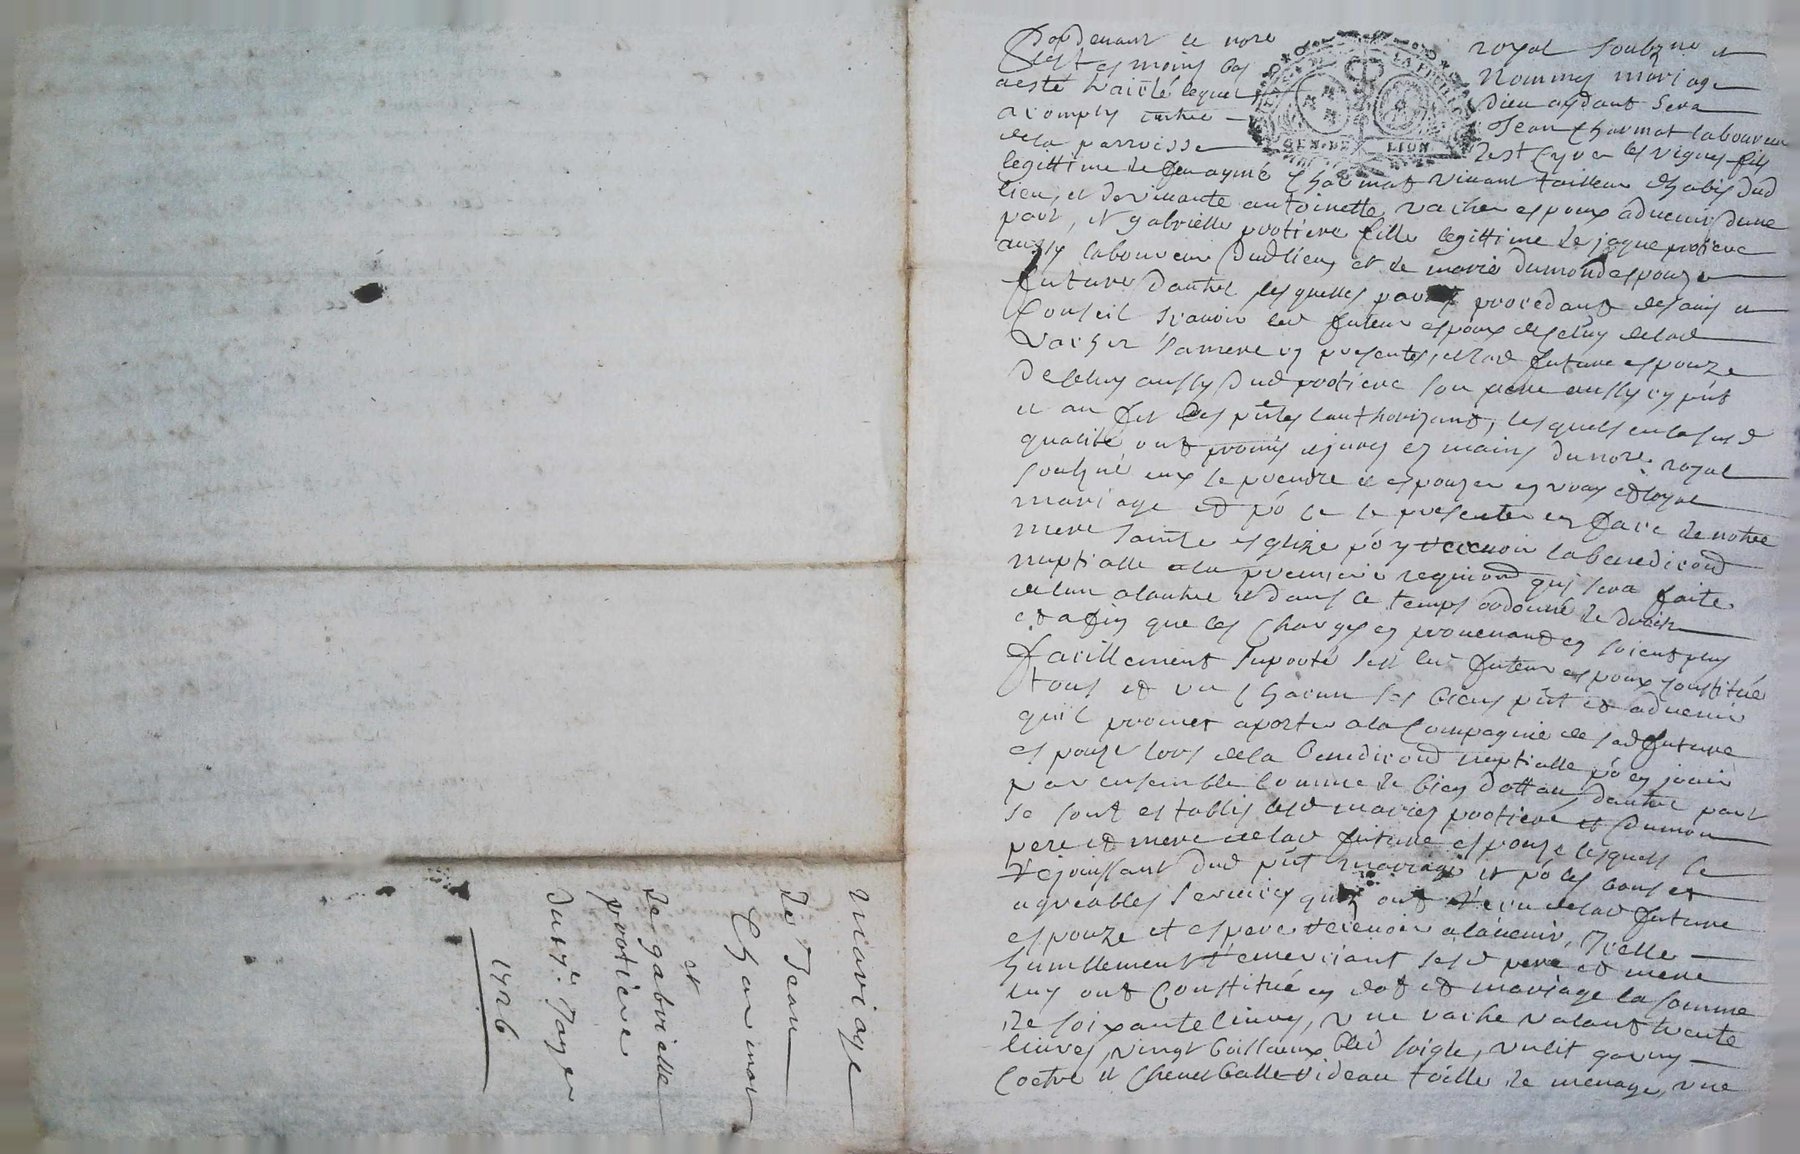 mariage
de Jean
Charmat
et
de gabrielle
protiere
du 17e. Janver
1726
Pardevant le nore royal soubzne et
les tesmoins bas nommes mariage
a esté traicté lequel dieu aydant sera
acomply entre Jean Charmat laboureur
de la parroisse de st Cyr les vignes fils
legittime de feu aymé Charmat vivant tailleur dhabis dud
lieu, et de vivante antoinette vacher espoux advenir dune
part, et gabrielle protiere fille legittime de jaque protiere
aussy laboureur dud lieu et de marie dumond espouze
future dautre lesquelles parties procedant de lavis et
Conseil scavoir led futeur espoux de celuy de lad
vacher sa mere icy presente, et lad future espouze
de celuy aussy dud protiere son pere aussy icy pnt
et au fet des pntes lauthorizant, lesquels en lesusd
qualité ont promis et jures es mains du nore royal
soubzné eux se prendre et espouzer en vray et loyal
mariage et po ce se presenter en face de notre
mere sainte esglize po y recevoir la benediction
nuptialle a la premiere requisiond quy sera faite
de lun a lautre et dans le temps ordonné de droict
et afin que les charges en provenand en soient plus
facillement suporté sest led futeur espoux constitué
tous et un chacun ses biens pnt et advenir
quil promet aporter a la Compagnie de sad future
espouze lors de la benediction nuptialle po en jouir
par ensemble comme de bien dottau, dautre part
se sont establis lesd maries protiere et dumon
pere et mere de lad future espouze lesquels se
rejouissant dud pnt mariage et po les bons et
agreables services quils ont receu de lad future
espouze et espere recevoir a ladvenir, Icelle
humblement remerciant sesd pere et mere
luy ont Constitué en dot et mariage la somme
de soixante livres, une vache valant trente
livres, vingt boisseaux bled soigle, un lit garny
Coetre et Chevet balle rideau toille de menage, une
GEN. DE LION